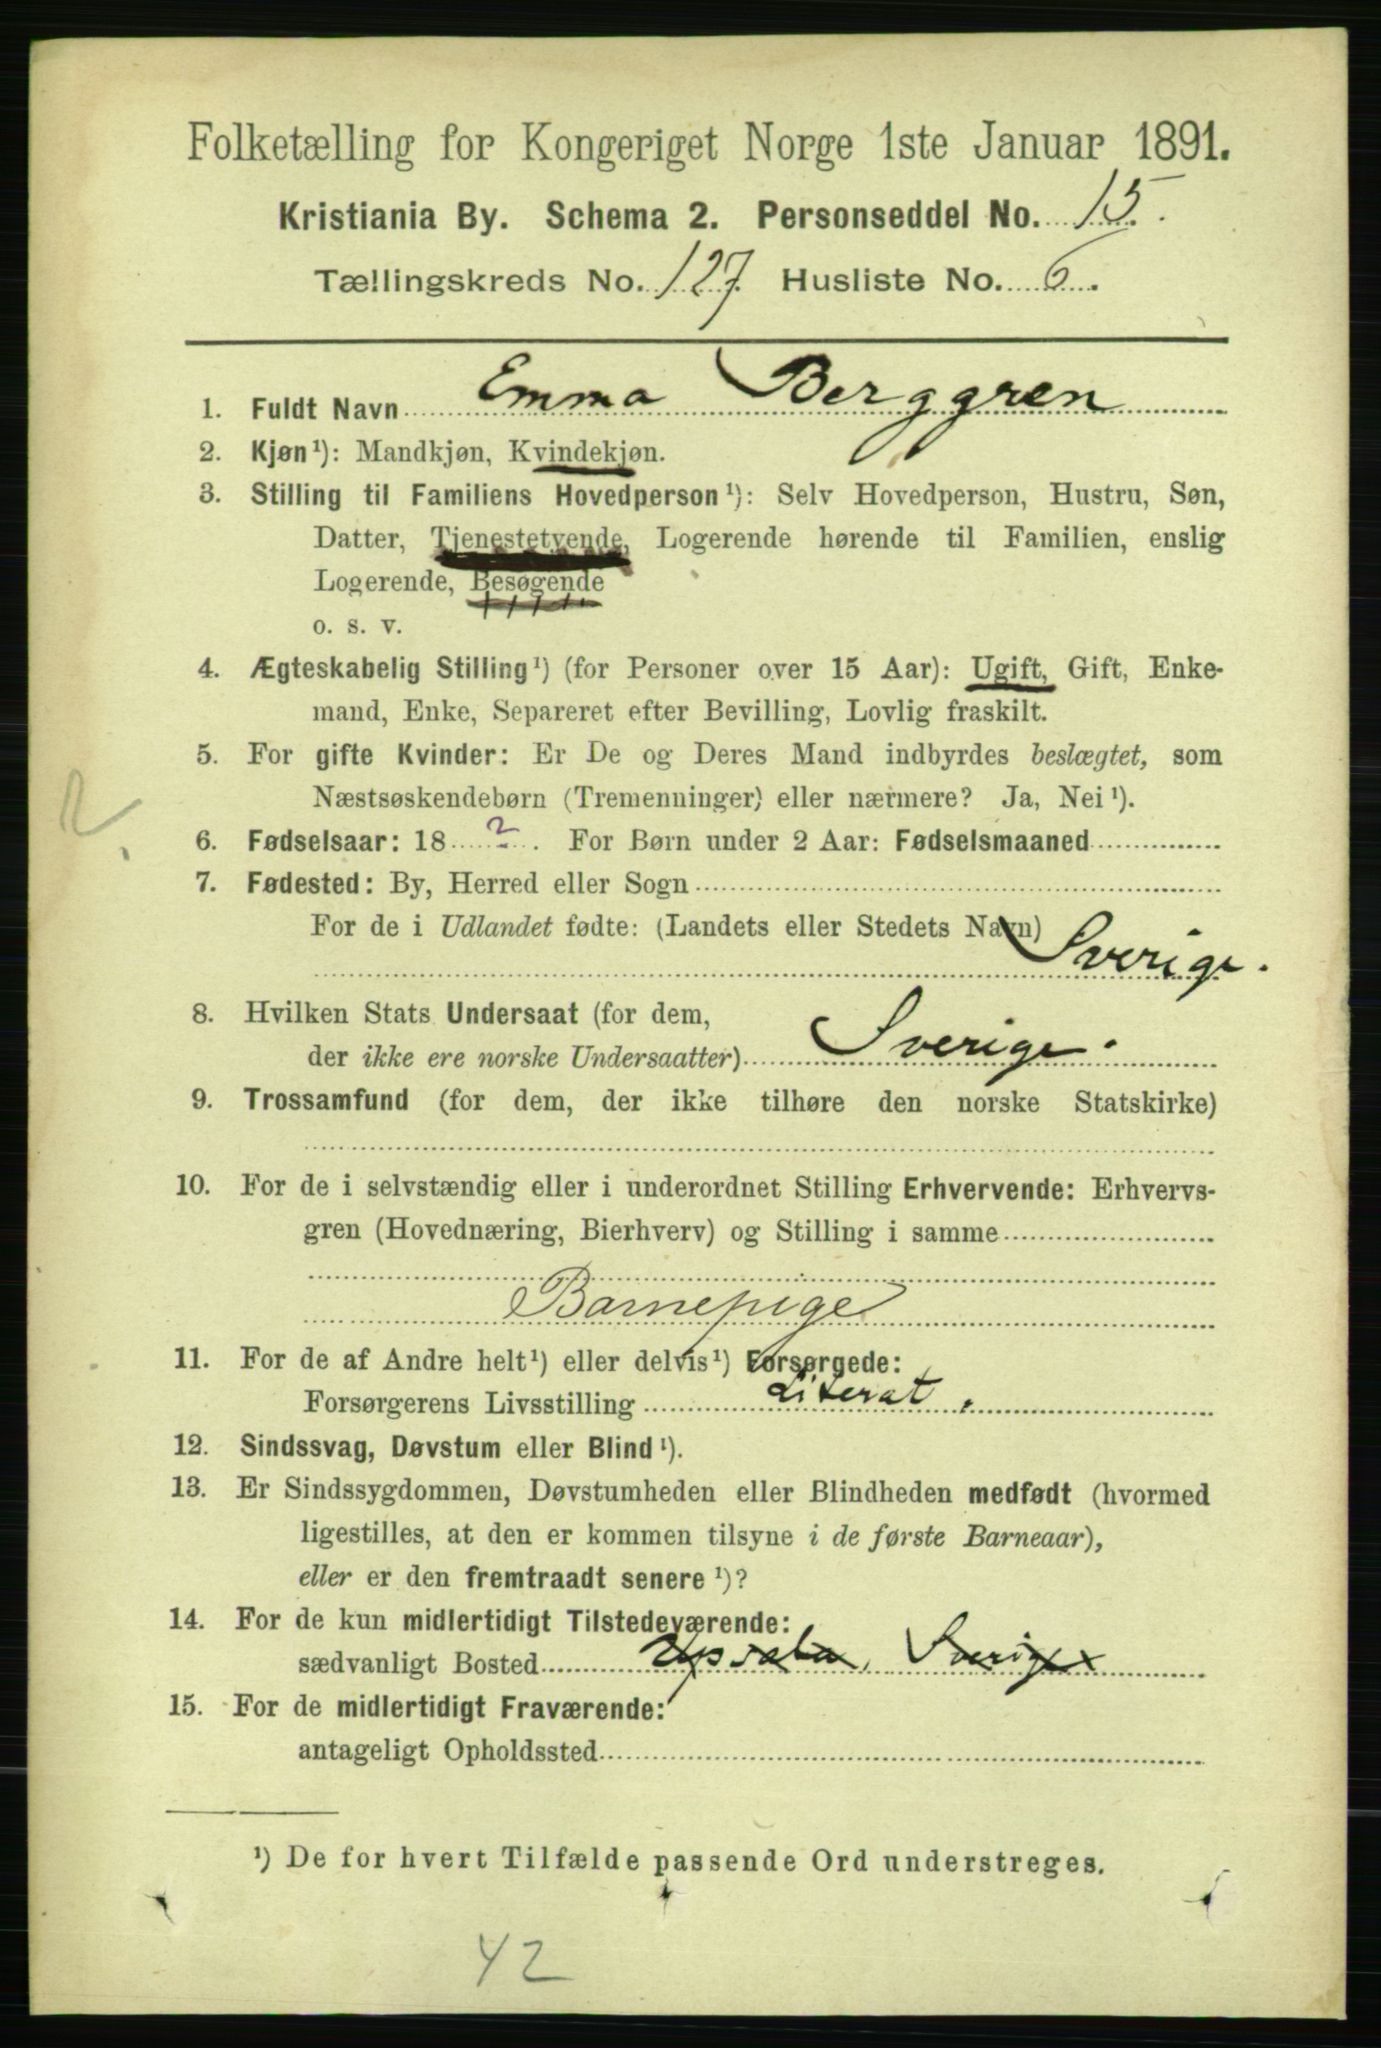 Folketælling for Kongeriget Norge 1ste Januar 1891.
Kristiania By. Schema 2. Personseddel No. 15.
Tællingskreds No. 127. Husliste No. 6.
1. Fuldt Navn Emma Berggren
2. Kjøn¹): Mandkjøn, Kvindekjøn.
3. Stilling til Familiens Hovedperson¹): Selv Hovedperson, Hustru, Søn,
Datter, Tjenestetyende, Logerende hørende til Familien, enslig
Logerende, Besøgende
o. s. v.
4. Ægteskabelig Stilling¹) (for Personer over 15 Aar): Ugift, Gift, Enke-
mand, Enke, Separeret efter Bevilling, Lovlig fraskilt.
5. For gifte Kvinder: Er De og Deres Mand indbyrdes beslægtet, som
Næstsøskendebørn (Tremenninger) eller nærmere? Ja, Nei¹).
6. Fødselsaar: 18 ? . For Børn under 2 Aar: Fødselsmaaned
7. Fødested: By, Herred eller Sogn
For de i Udlandet fødte: (Landets eller Stedets Navn)
Sverige.
8. Hvilken Stats Undersaat (for dem,
der ikke ere norske Undersaatter) Sverige.
9. Trossamfund (for dem, der ikke tilhøre den norske Statskirke)
10. For de i selvstændig eller i underordnet Stilling Erhvervende: Erhvervs-
gren (Hovednæring, Bierhverv) og Stilling i samme
Barnepige
11. For de af Andre helt¹) eller delvis¹) Forsørgede:
Forsørgerens Livsstilling Literat.
12. Sindssvag, Døvstum eller Blind¹).
13. Er Sindssygdommen, Døvstumheden eller Blindheden medfødt (hvormed
ligestilles, at den er kommen tilsyne i de første Barneaar),
eller er den fremtraadt senere¹)?
14. For de kun midlertidigt Tilstedeværende:
sædvanligt Bosted Upsala, Sverige
15. For de midlertidigt Fraværende:
antageligt Opholdssted
¹) De for hvert Tilfælde passende Ord understreges.
42